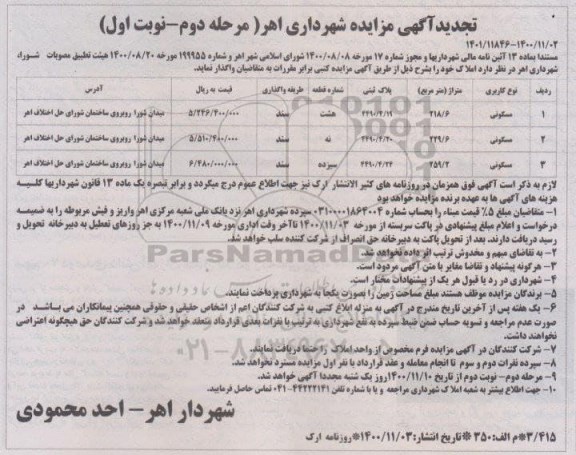 تجدیدآگهی مزایده شهرداری اهر( مرحله دوم-نوبت اول)
۱۴۰۱/۱۱۸۴۶-۱۴۰۰/۱۱/۰۲
مستندا بماده ۱۳ آئین نامه مالی شهرداریها و مجوز شماره ۱۷ مورخه ۱۴۰۰/۰۸/۰۸ شورای اسلامی شهر اهر و شماره ۱۹۹۹۵۵ مورخه ۱۴۰۰/۰۸/۲۰ هیئت تطبیق مصوبات شوراء،
شهرداری اهر در نظر دارد املاک خود را بشرح ذیل از طریق آگهی مزایده کتبی برابر مقررات به متقاضیان واگذار نماید.
ردیف نوع کاربری متراژ (متر مربع) پلاک ثبتی شماره قطعه طریقه واگذاری قیمت به ریال آدرس
۱ مسکونی ۲۱۸/۶ ۲۴۹۰/۴/۱۹ هشت سند ۵/۲۴۶/۴۰۰/۰۰۰ میدان شورا روبروی ساختمان شورای حل اختلاف اهر
۲ مسکونی ۲۲۹/۶ ۲۴۹۰/۴/۲۰ نه سند ۵/۵۱۰/۴۰۰/۰۰۰ میدان شورا روبروی ساختمان شورای حل اختلاف اهر
۳ مسکونی ۲۵۹/۲ ۲۴۹۰/۴/۲۴ سیزده سند ۶/۴۸۰/۰۰۰/۰۰۰ میدان شورا روبروی ساختمان شورای حل اختلاف اهر
لازم به ذکر است آگهی فوق همزمان در روزنامه های کثیر الانتشار ارک نیز جهت اطلاع عموم درج میگردد و برابر تبصره یک ماده ۱۳ قانون شهرداریها کلیسه
هزینه های آگهی ها به عهده برنده مزایده خواهد بود
۱- متقاضیان مبلغ ۵٪ قیمت مبناء را بحساب شماره ۰۳۱۰۰۰۰۱۸۶۳۰۰۴ سپرده شهرداری اهر نزد بانک ملی شعبه مرکزی اهر واریز و فیش مربوطه را به ضمیمه
درخواست و اعلام مبلغ پیشنهادی در پاکت سربسته از مورخه ۱۴۰۰/۱۱/۰۳ تا آخر وقت اداری مورخه ۱۴۰۰/۱۱/۰۹ به جز روزهای تعطیل به دبیرخانه تحویل و
رسید دریافت دارند، بعد از تحویل پاکت به دبیرخانه حق انصراف از شرکت کننده سلب خواهد شد.
۲- به تقاضای مبهم و مخدوش ترتیب اثر داده نخواهد شد.
۳- هرگونه پیشنهاد و تقاضا مغایر با متن آگهی مردود است.
۴- شهرداری در رد یا قبول هر یک از پیشنهادات مختار است.
۵- برندگان مزایده موظف هستند مبلغ مساحت زمین را بصورت یکجا به شهرداری پرداخت نمایند.
۶- یک هفته پس از آخرین تاریخ مندرج در آگهی به منزله ابلاغ کتبی به شرکت کنندگان اعم از اشخاص حقیقی و حقوقی همچنین پیمانکاران می باشد و در
صورت عدم مراجعه و تسویه حساب ضمن ضبط سپرده به نفع شهرداری به ترتیب با نفرات بعدی قرارداد منعقد خواهد شد و شرکت کنندگان حق هیچگونه اعتراضی
نخواهند داشت.
۷- شرکت کنندگان در آگهی مزایده فرم مخصوص از واحد املاک را حتما دریافت نمایند.
۸- سپرده نفرات دوم و سوم تا انجام معامله و عقد قرارداد با نفر اول مزایده مسترد نخواهد شد.
۹- مرحله دوم- نوبت دوم از تاریخ ۱۴۰۰/۱۱/۱۰ روز یک شنبه مجددا آگهی خواهد شد.
۱۰- جهت اطلاع بیشتر به شعبه املاک شهرداری مراجعه و یا با شماره تلفن ۰۴۱-۴۴۲۲۲۱۴۱ تماس حاصل فرمایید.
شهردار اهر- احد محمودی
۳/۴۱۵*م الف:۳۵۰ *تاریخ انتشار:۱۴۰۰/۱۱/۰۳*روزنامه ارک
ParsNamadData
۰۲۱-۸۸۳۴۹۶۷۰-۵